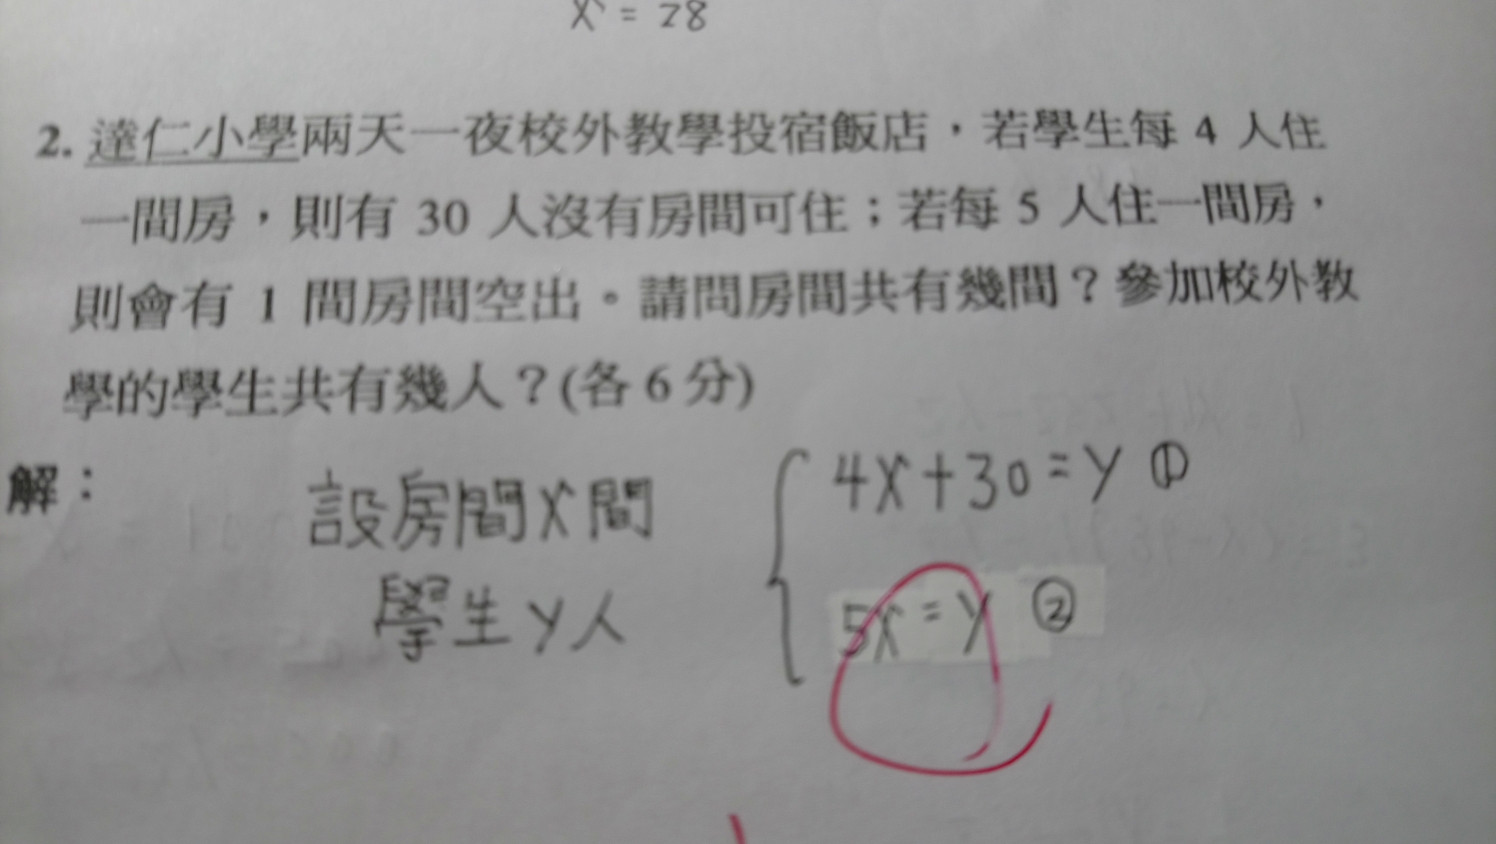 x = 28
2. 達仁小學兩天一夜校外教學投宿飯店，若學生每 4 人住
一間房，則有 30 人沒有房間可住；若每 5 人住一間房，
則會有 1 間房間空出。請問房間共有幾間？參加校外教
學的學生共有幾人？(各 6 分)
解：
設房間x間
學生y人
4x+30=y ①
5x=y ②